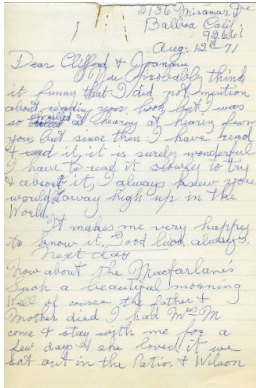 2136 Miramar Dr
Balboa Calif
92661
Aug. 12th 71
Dear Clifford &
You Probably think
it funny that I did not mention
about reading your book but I was
so at hearing from
you but since then I have read
I read it, it is surely wonderful
I have to read it slowly to try
& it, I always knew you
would away high up in the
World
It makes me very happy
to know it, Good luck always
next day
now about the Macfarlanes
a beautiful morning
Well of course the father &
Mother died I had Mrs M
come & stay with me for a
few days & she loved it we
eat out in the Patio & Wilson